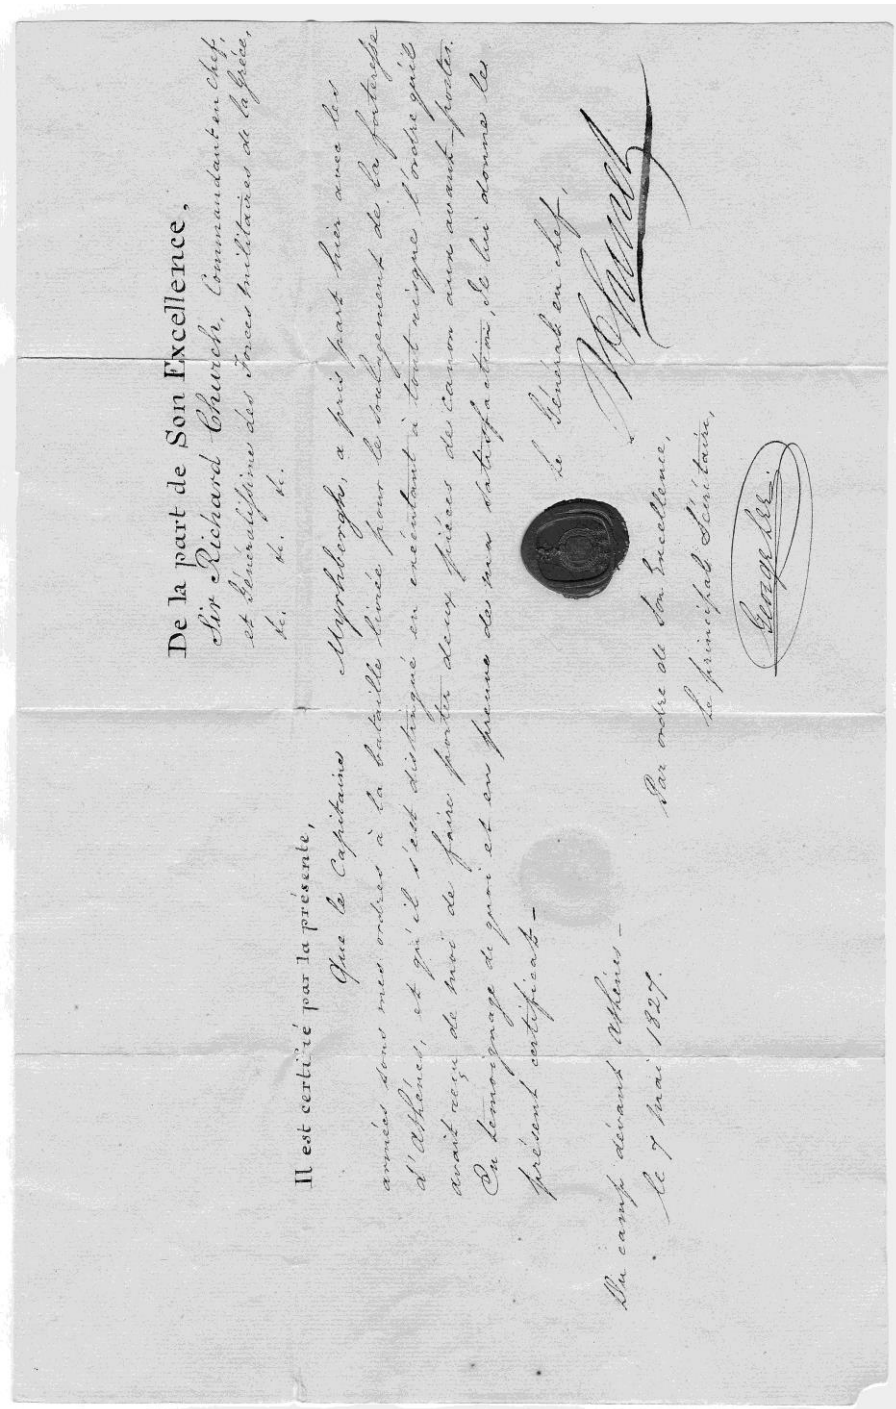 De la part de Son Excellence,
Sir Richard Church, Commandant en chef,
et Généralissime des Forces Militaires de la Grèce,
&c. &c. &c.
Il est certifié par la présente,
Que le Capitaine Myrhbergh, a pris part hier avec les
armées sous mes ordres à la bataille livrée pour le soulagement de la forteresse
d'Athénes, et qu'il s'est distingué en exécutant à tout risque l'ordre qu'il
avait reçu de moi de faire porter deux pièces de canon aux avant-postes.
En témoignage de quoi et en preuve de ma satisfaction, Je lui donne le
présent certificat—
Le Général en chef,
Du camp dévant Athènes—
le 7 Mai 1827.
Par ordre de Son Excellence,
Le principal Sécrétaire,
George Lee